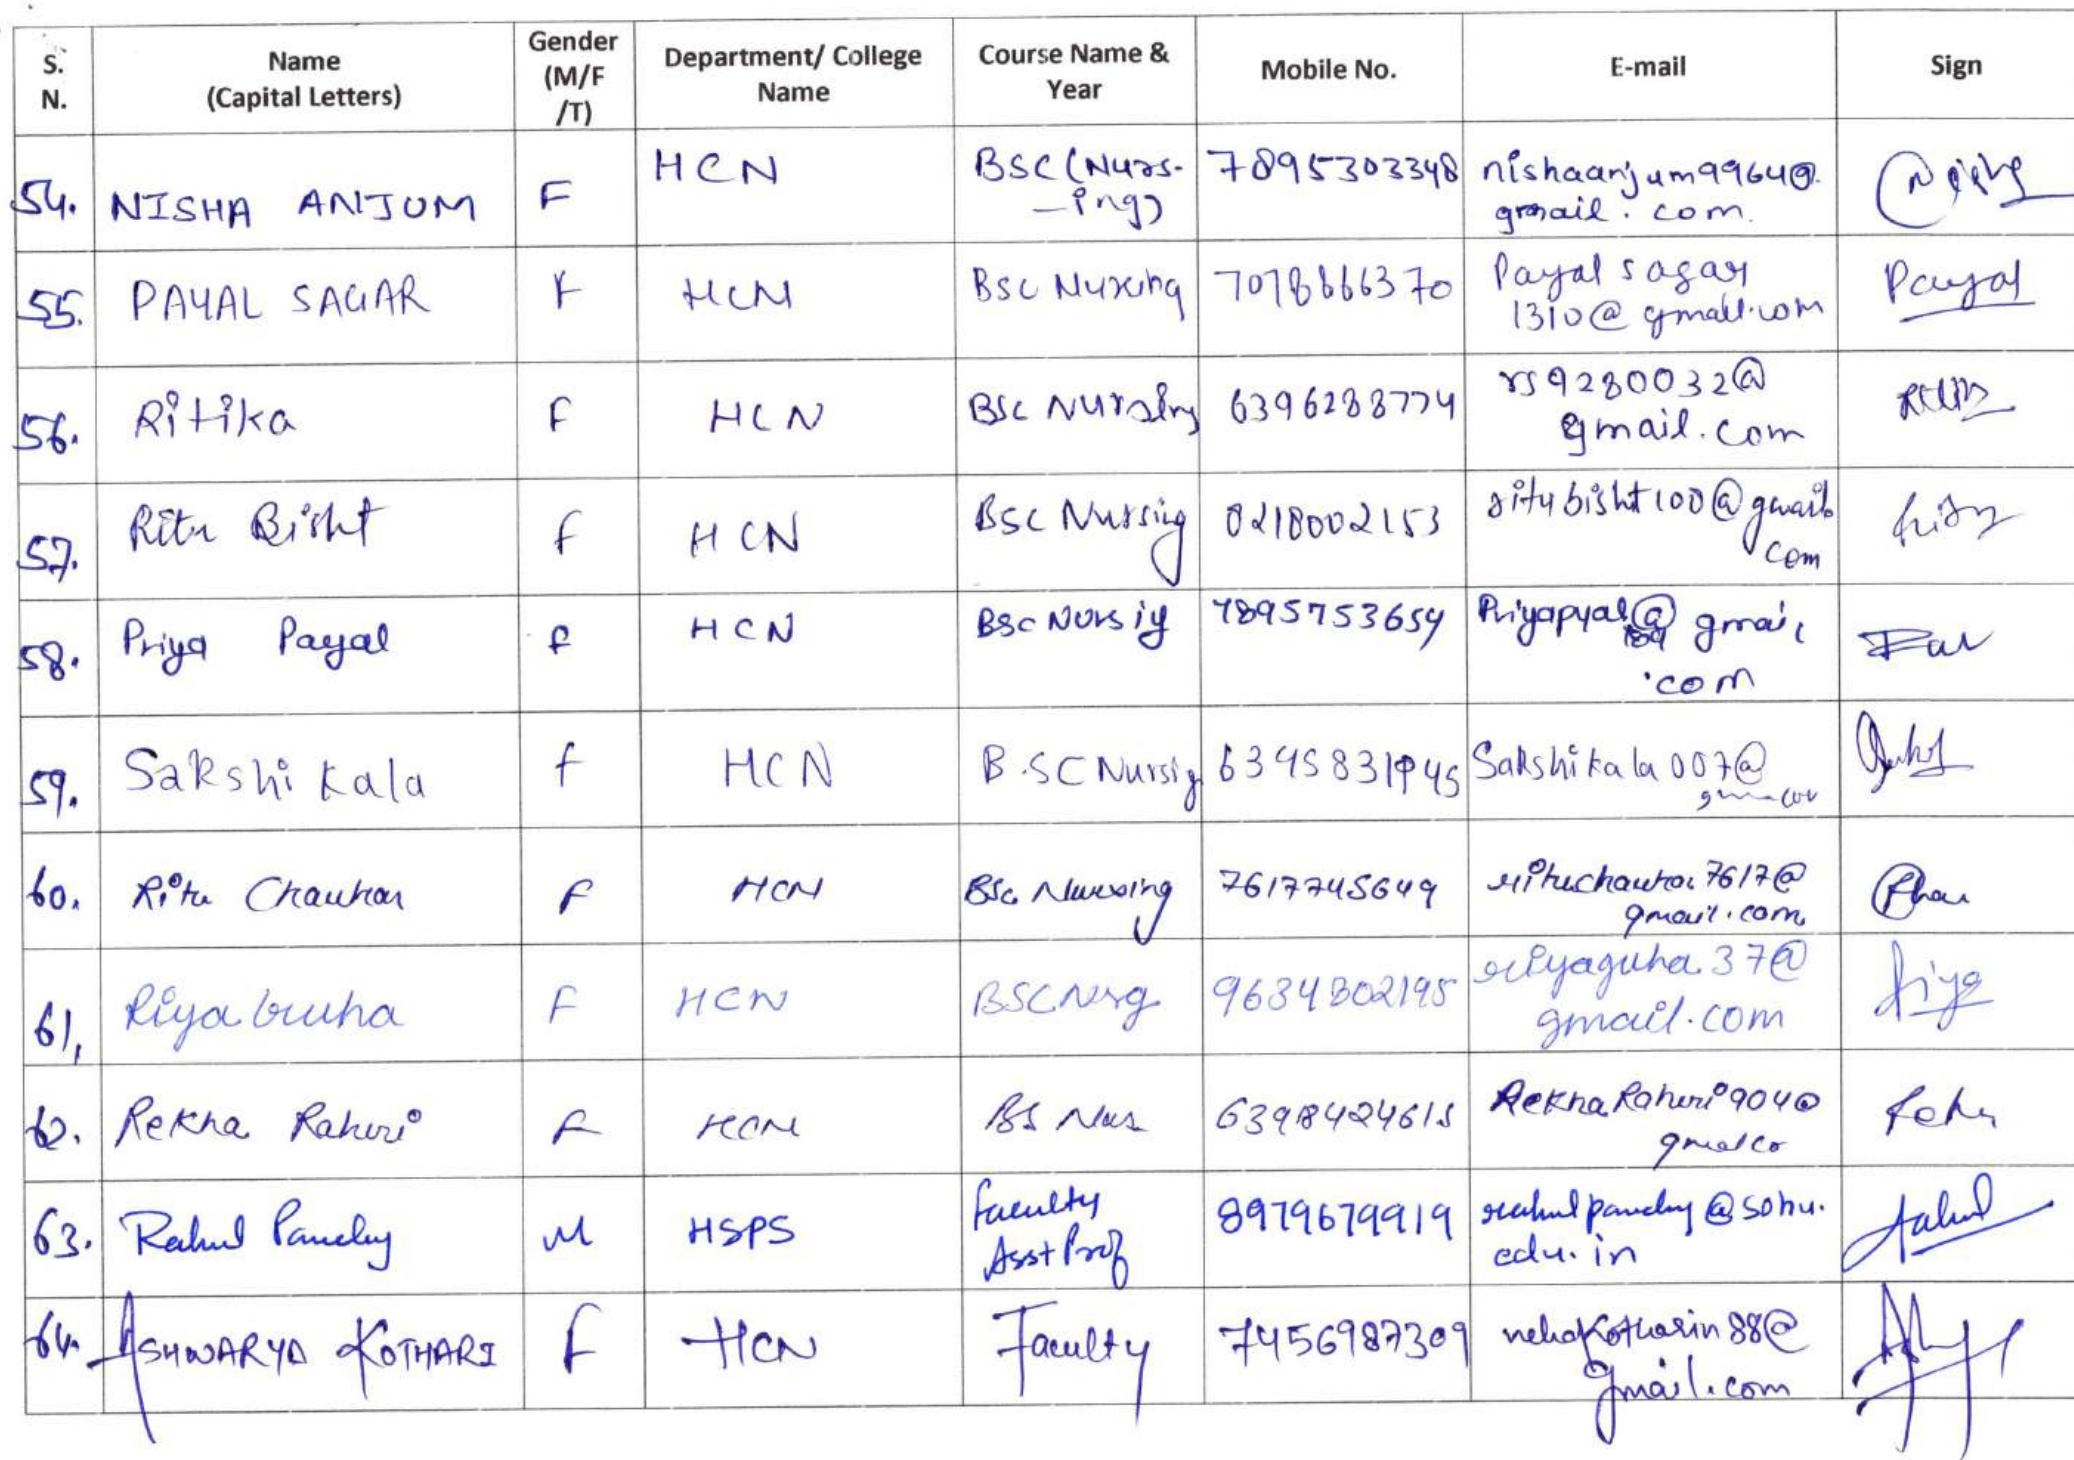 S. N. Name (Capital Letters) Gender (M/F /T) Department/ College Name Course Name & Year Mobile No. E-mail Sign
54. NISHA ANJUM F HCN BSC (Nurs- -ing) 7895303348 nishaanjum9964@ gmail.com.
55. PAYAL SAGAR F HCN BSC Nursing 7078666370 Payalsagar 1310@gmail.com Payal
56. Ritika F HCN BSC Nursing 6396288774 rs9280032@ gmail.com
57. Ritu Bisht f HCN BSC Nursing 8218002153 ritubisht100@gmail. com
58. Priya Payal f HCN BSC Nursig 7895753659 gmail .com
59. Sakshi Kala f HCN B.SC Nursig Sakshikala007@
60. Ritu Chauhan F HCN BSc. Nursing 7617745649 gmail.com
61, Riya Guha F HCN BSC Nsrg 9634802195 riyaguha37@ gmail.com Riya
62. Rekha F HCN BS Nus 6398424615
63. Rahul Pandey M HSPS Faculty Asst Prof 8979679919 rahulpandey@sbhu. edu.in Rahul
64. ASHWARYA KOTHARI F HCN Faculty 7456987309 nehakotharin88@ gmail.com